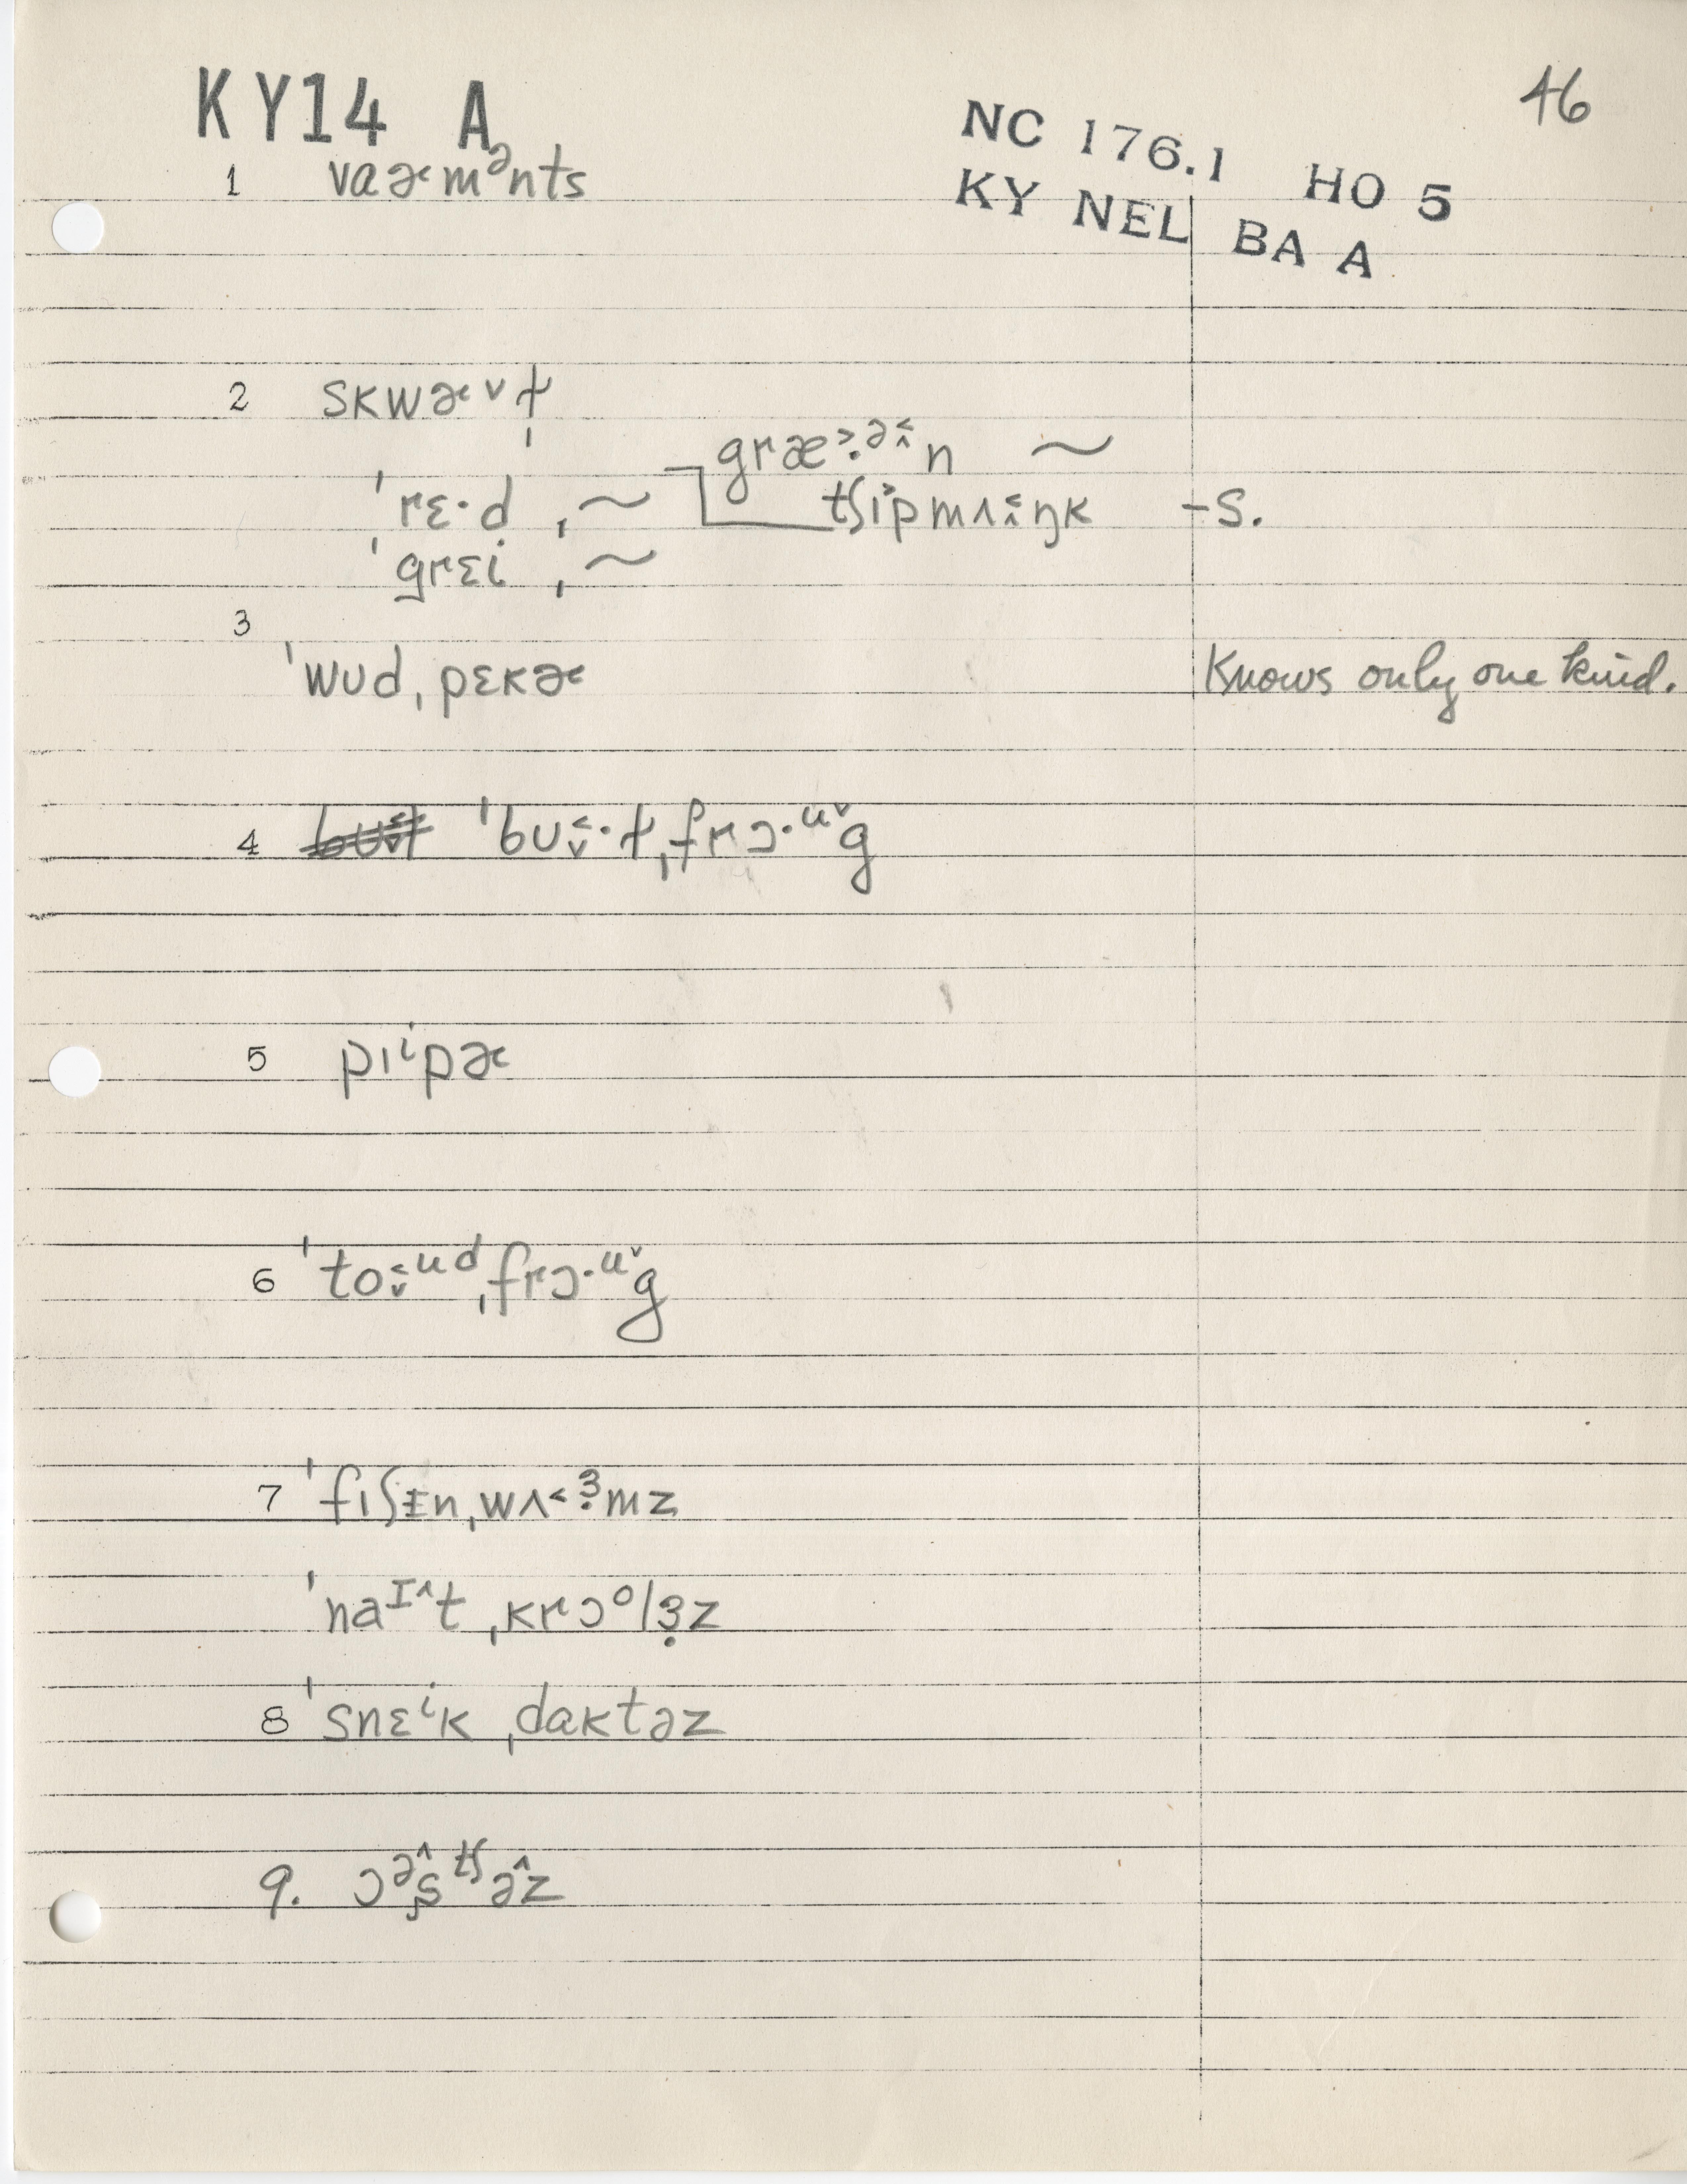 KY14 A
46
NC 176.1 HO 5
KY NEL BA A
1 vaɚmᵊnts
2 skwɚ˅ɫ̩
græ˃̣ᵊ˂̭n ~
ˈrɛ·d ˌ~ tʃi˃pmʌ˂̭ŋk -s.
ˈgrɛi ˌ~
3
ˈwʊd ˌpɛkɚ Knows only one kind.
4 ˈbʊ˂̬·ɫ ˌfrɔ·ᵘ˅g
5 pɪⁱpɚ
6 ˈto˂̬ᵘd ˌfrɔ·ᵘ˅g
7 ˈfɪʃɪ̵n ˌwʌ˂ᶾ̣mz
ˈnaᴵ^t ˌkrɔᵒlɜ̣z
8 ˈsnɛⁱk ˌdaktəz
9. ɔᵊ^ʂᵗᶴə^z